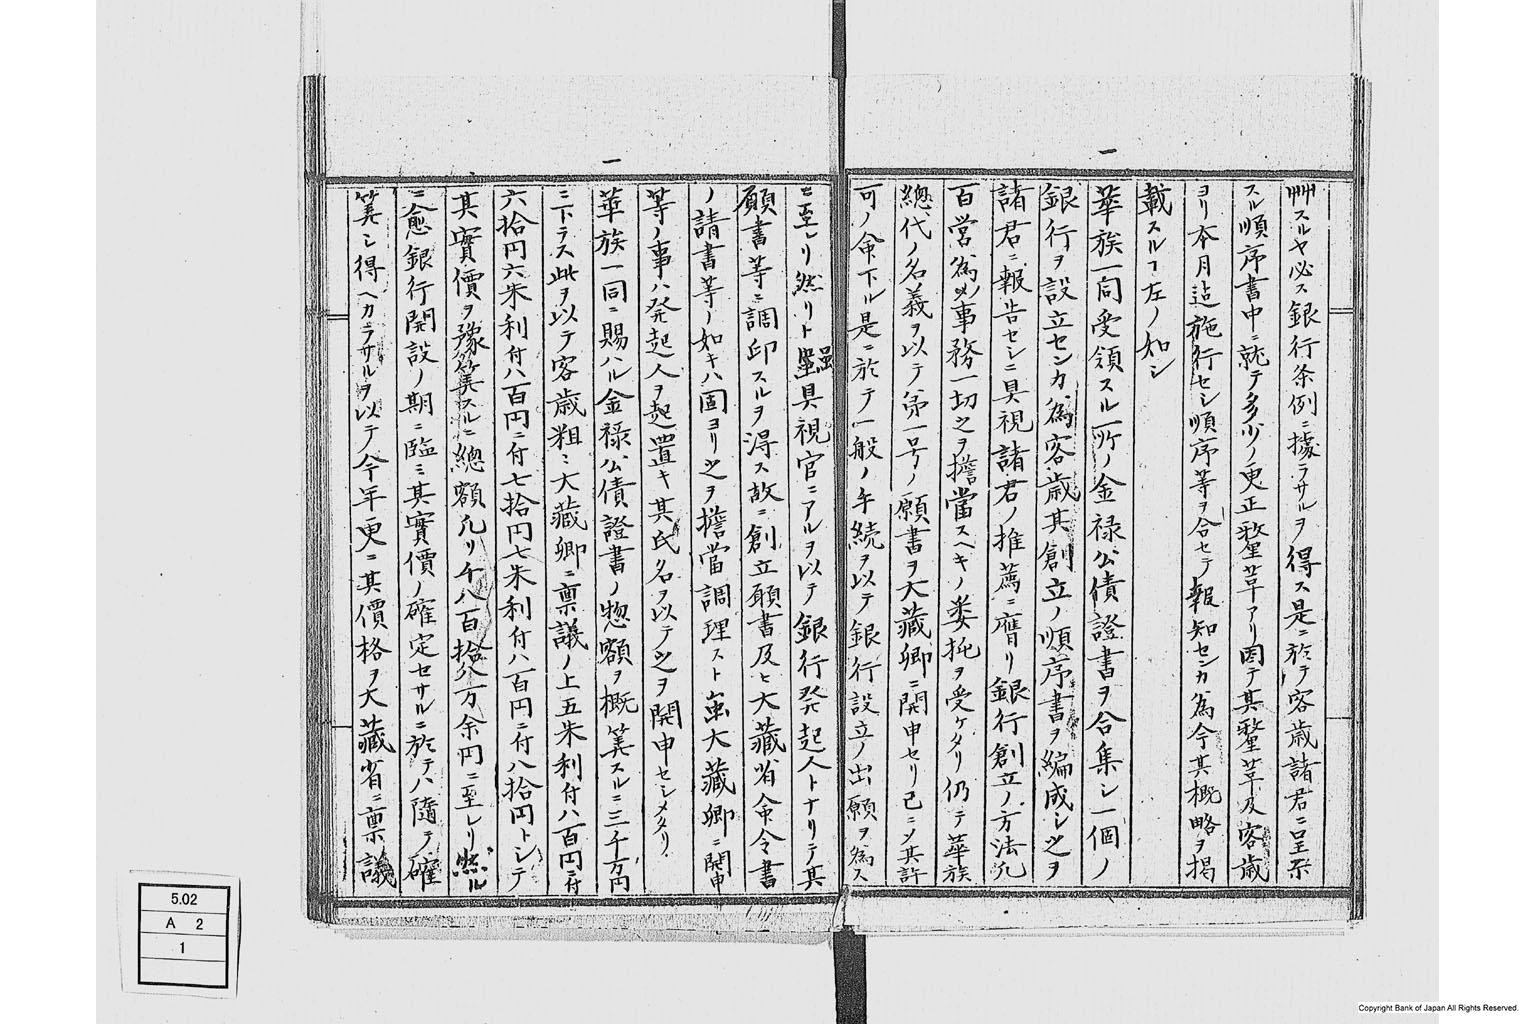 一
スルヤ必ス銀行条例ニ據ラサルヲ得ス是ニ於テ客歳諸君ニ呈示
スル順序書中ニ就テ多少ノ更正釐革アリ因テ其釐革及客歳
ヨリ本月迠施行セシ順序等ヲ合セテ報知センカ為今其概略ヲ掲
載スルヿ左ノ如シ
華族一同受領スル所ノ金禄公債證書ヲ合集シ一個ノ
銀行ヲ設立センカ為客歳其創立ノ順序書ヲ編成シ之ヲ
諸君ニ報告セシニ具視諸君ノ推薦ニ膺リ銀行創立ノ方法凢
百営為ノ事務一切之ヲ擔當スヘキノ委托ヲ受ケタリ仍テ華族
總代ノ名義ヲ以テ第一号ノ願書ヲ大蔵卿ニ開申セリ已ニシテ其許
可ノ命下ル是ニ於テ一般ノ手続ヲ以テ銀行設立ノ出願ヲ為ス
一
ニ至レリ然リト雖具視官ニアルヲ以テ銀行発起人トナリテ其
願書等ニ調印スルヲ得ス故ニ創立願書及ヒ大蔵省命令書
ノ請書等ノ如キハ固ヨリ之ヲ擔當調理スト雖大蔵卿ニ開申
等ノ事ハ発起人ヲ起置キ其氏名ヲ以テ之ヲ開申セシメタリ
華族一同ニ賜ハル金禄公債證書ノ惣額ヲ概筭スルニ三千万円
ニ下ラス此ヲ以テ客歳粗ミ大蔵卿ニ禀議ノ上五朱利付ハ百円ニ付
六拾円六朱利付ハ百円ニ付七拾円七朱利付ハ百円ニ付八拾円トシテ
其實價ヲ豫筭スルニ總額凡ソ千八百拾八万余円ニ至レリ然ル
ニ愈銀行開設ノ期ニ臨ミ其實價ノ確定セサルニ於テハ随テ確
筭シ得ヘカラサルヲ以テ今年更ニ其價格ヲ大蔵省ニ禀議
5.02
A 2
1
Copyright Bank of Japan All Rights Reserved.